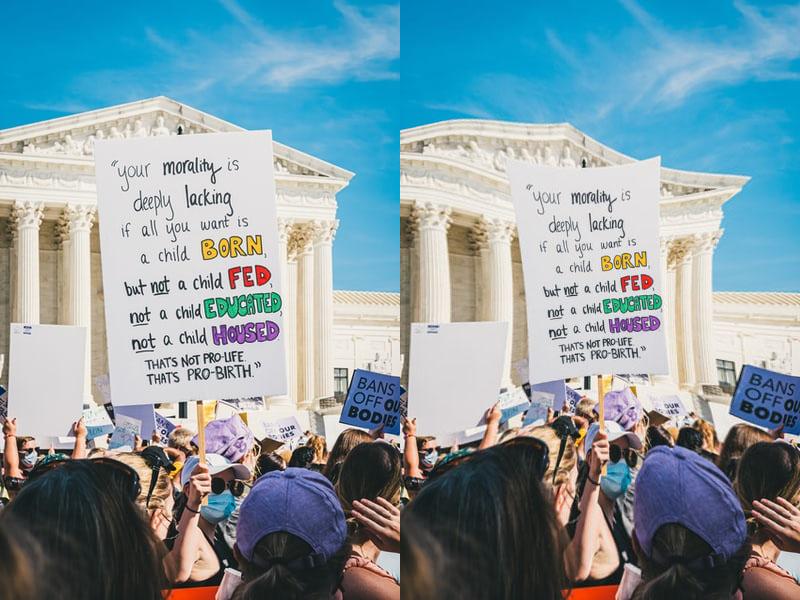 "your morality is
deeply lacking
if all you want is
a child BORN,
but not a child FED,
not a child EDUCATED,
not a child HOUSED
THAT'S NOT PRO-LIFE.
THAT'S PRO-BIRTH."
BANS
OFF OU
BODIES
OUR
"your morality is
deeply lacking
if all you want is
a child BORN,
but not a child FED,
not a child EDUCATED,
not a child HOUSED
THAT'S NOT PRO-LIFE.
THAT'S PRO-BIRTH."
BANS
OFF OUR
BODIES
OUR